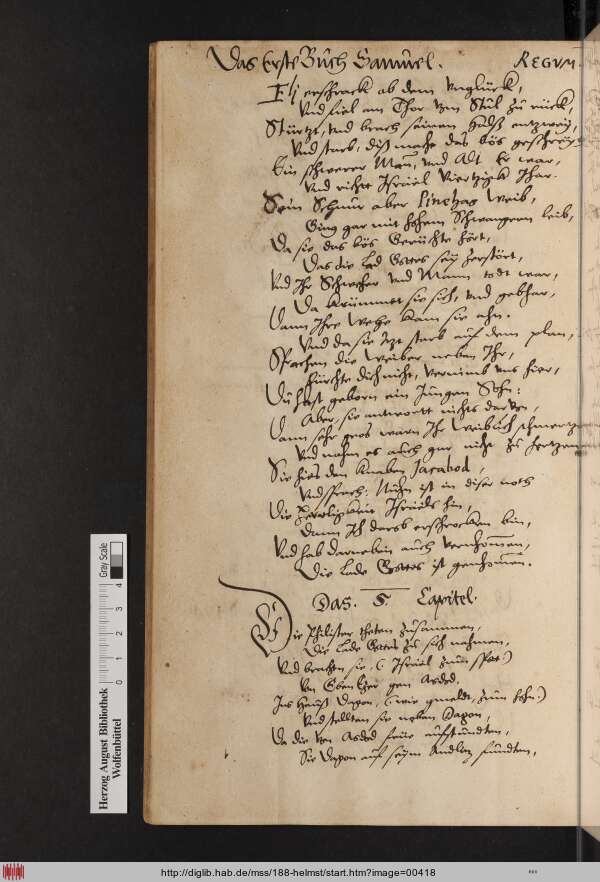 Das Erste Buch Samuel. REGVM
Elj erschrack ob dem vnglück,
Vnd fiel am Thor vom Stůl zů rück,
Stürtzt, vnd brach seinen halß entzwey,
Vnd starb, diß macht das bös geschrey
Ein schwerer Man, vnd Alt Er war,
Vnd richt Israel viertzigk Jhar.
Sein Schnur aber Pinehas Weib,
Ging gar mit hohem Schwangern leib,
Da sie das bös Gerüchte hört,
Das die Lad Gottes sey zerstört,
Vnd Ihr Schweher vnd Mann todt war,
Da krümmet sie sich, vnd gebhar,
Dann Ihre Wehe kam sie ahn.
Vnd da sie itzt starb auf dem plan,
Sprachen die Weiber neben Ihr,
Fürchte dich nicht, vernimb vns hier,
Du hast geborn ein Jungen Sohn:
Aber sie antwortt nichts darvon,
Dann sehr gros warn Ihr Weiblich schmertzen
Vnd nahm es auch gar nicht zu hertzen
Sie hies den Knaben Jacabod,
Vnd sprach: Nuhn ist in diser noth
Die Herrligkeit Israels hin,
Dann Ich darob erschrocken bin,
Vnd hab darneben auch vernhommen,
Die Lade Gottes ist genhommen.
Das. 5. Capitel.
Die Philister theten zusammen,
Die Lade Gottes zů sich nahmen,
Vnd brachten sie, (Israel zum spot)
Von Eben Ezer gen Asdod.
Ins Hauß Dagon, (wie gmeldt, zum hohn)
Vnd stellten sie neben Dagon,
Da die von Asdod früe aufstundten,
Sie Dagon auf seym Andlitz fundten,
Herzog August Bibliothek
Wolfenbüttel
Gray Scale
0 1 2 3 4
http://diglib.hab.de/mss/188-helmst/start.htm?image=00418